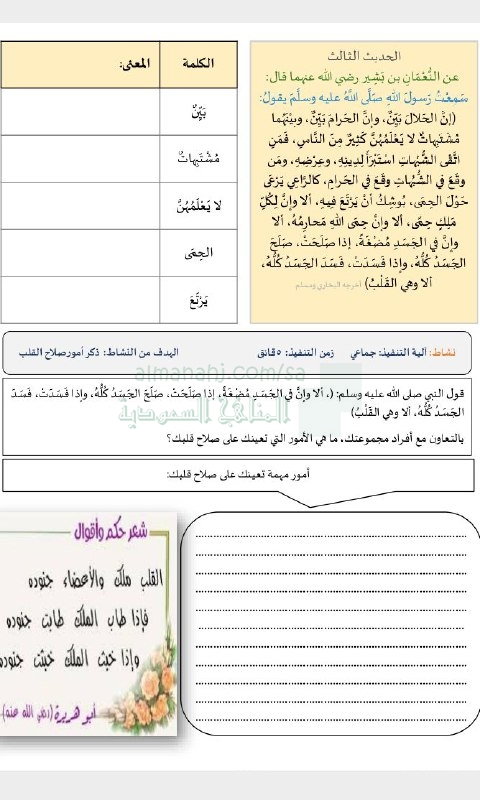 الحديث الثالث
عن النُّعْمَانِ بن بَشِير رضي الله عنهما قال:
سَمِعْتُ رَسولَ اللهِ صَلَّى اللهُ عليه وسلَّمَ يقولُ:
(إنَّ الحَلالَ بَيِّنٌ، وإنَّ الحَرامَ بَيِّنٌ، وبيْنَهُما
مُشْتَبِهاتٌ لا يَعْلَمُهُنَّ كَثِيرٌ مِنَ النَّاسِ، فَمَنِ
اتَّقَى الشُّبُهاتِ اسْتَبْرَأَ لِدِينِهِ، وعِرْضِهِ، ومَن
وقَعَ في الشُّبُهاتِ وقَعَ في الحَرامِ، كالرَّاعِي يَرْعَى
حَوْلَ الحِمَى، يُوشِكُ أنْ يَرْتَعَ فيهِ، ألا وإنَّ لِكُلِّ
مَلِكٍ حِمًى، ألا وإنَّ حِمَى اللهِ مَحارِمُهُ، ألا
وإنَّ في الجَسَدِ مُضْغَةً، إذا صَلَحَتْ، صَلَحَ
الجَسَدُ كُلُّهُ، وإذا فَسَدَتْ، فَسَدَ الجَسَدُ كُلُّهُ،
ألا وهي القَلْبُ) أخرجه البخاري ومسلم
الكلمة المعنى:
بَيِّنٌ
مُشْتَبِهاتٌ
لا يَعْلَمُهُنَّ
الحِمَى
يَرْتَعَ
نشاط: آلية التنفيذ: جماعي زمن التنفيذ: ٥قائق الهدف من النشاط: ذكر أمورصلاح القلب
almanahj.com/sa
المناهج السعودية
قول النبي صلى الله عليه وسلم: (، ألا وإنَّ في الجَسَدِ مُضْغَةً، إذا صَلَحَتْ، صَلَحَ الجَسَدُ كُلُّهُ، وإذا فَسَدَتْ، فَسَدَ
الجَسَدُ كُلُّهُ، ألا وهي القَلْبُ)
بالتعاون مع أفراد مجموعتك، ما هي الأمور التي تعينك على صلاح قلبك؟
أمور مهمة تعينك على صلاح قلبك:
شعر حكم وأقوال
القلب ملك والأعضاء جنوده
فإذا طاب الملك طابت جنوده
وإذا خبث الملك خبثت جنوده
أبو هريرة (رضي الله عنه)